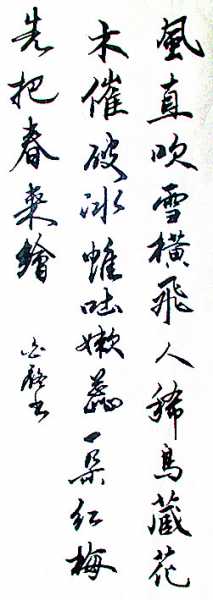 風直吹雪橫飛人稀鳥藏花
木催破冰惟吐嫩蕊一朵红梅
先把春来繪